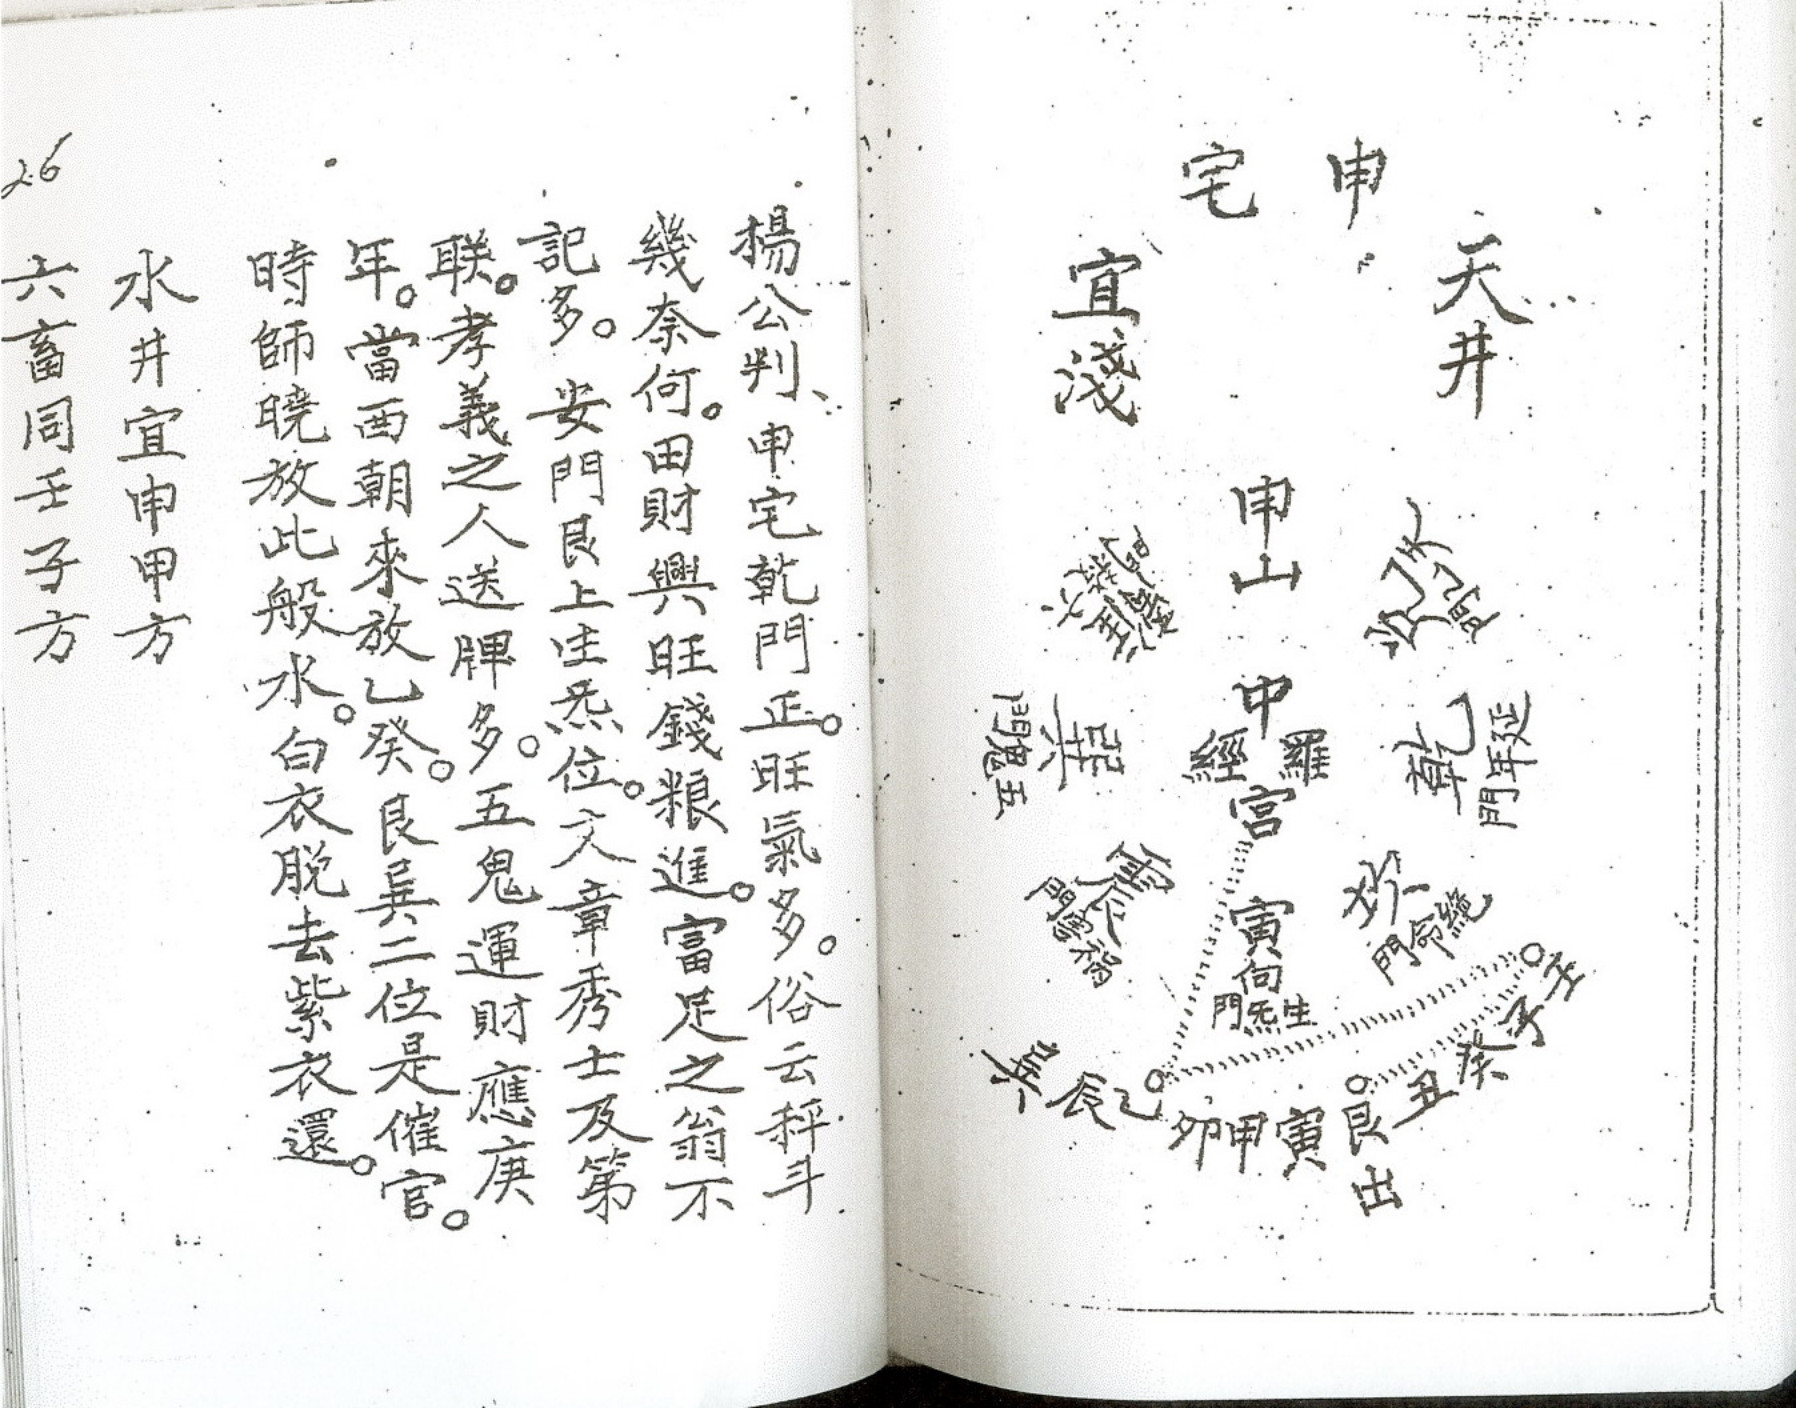 申宅
天井
宜淺
申山
兌
門
乾
延年門
中
羅經
宮
巽
五鬼門
坎
絕命門
震
禍害門
寅向
生炁門
壬子癸丑艮寅甲卯乙辰巽
出
楊公判、申宅乾門正。旺氣多。俗云秤斗
幾奈何。田財興旺錢粮進。富足之翁不
記多。安門艮上生炁位。文章秀士及第
联。孝義之人送牌多。五鬼運財應庚
年。當酉朝來放乙癸。艮巽二位是催官。
時師曉放此般水。白衣脱去紫衣還。
水井宜申甲方
六畜同壬子方
26